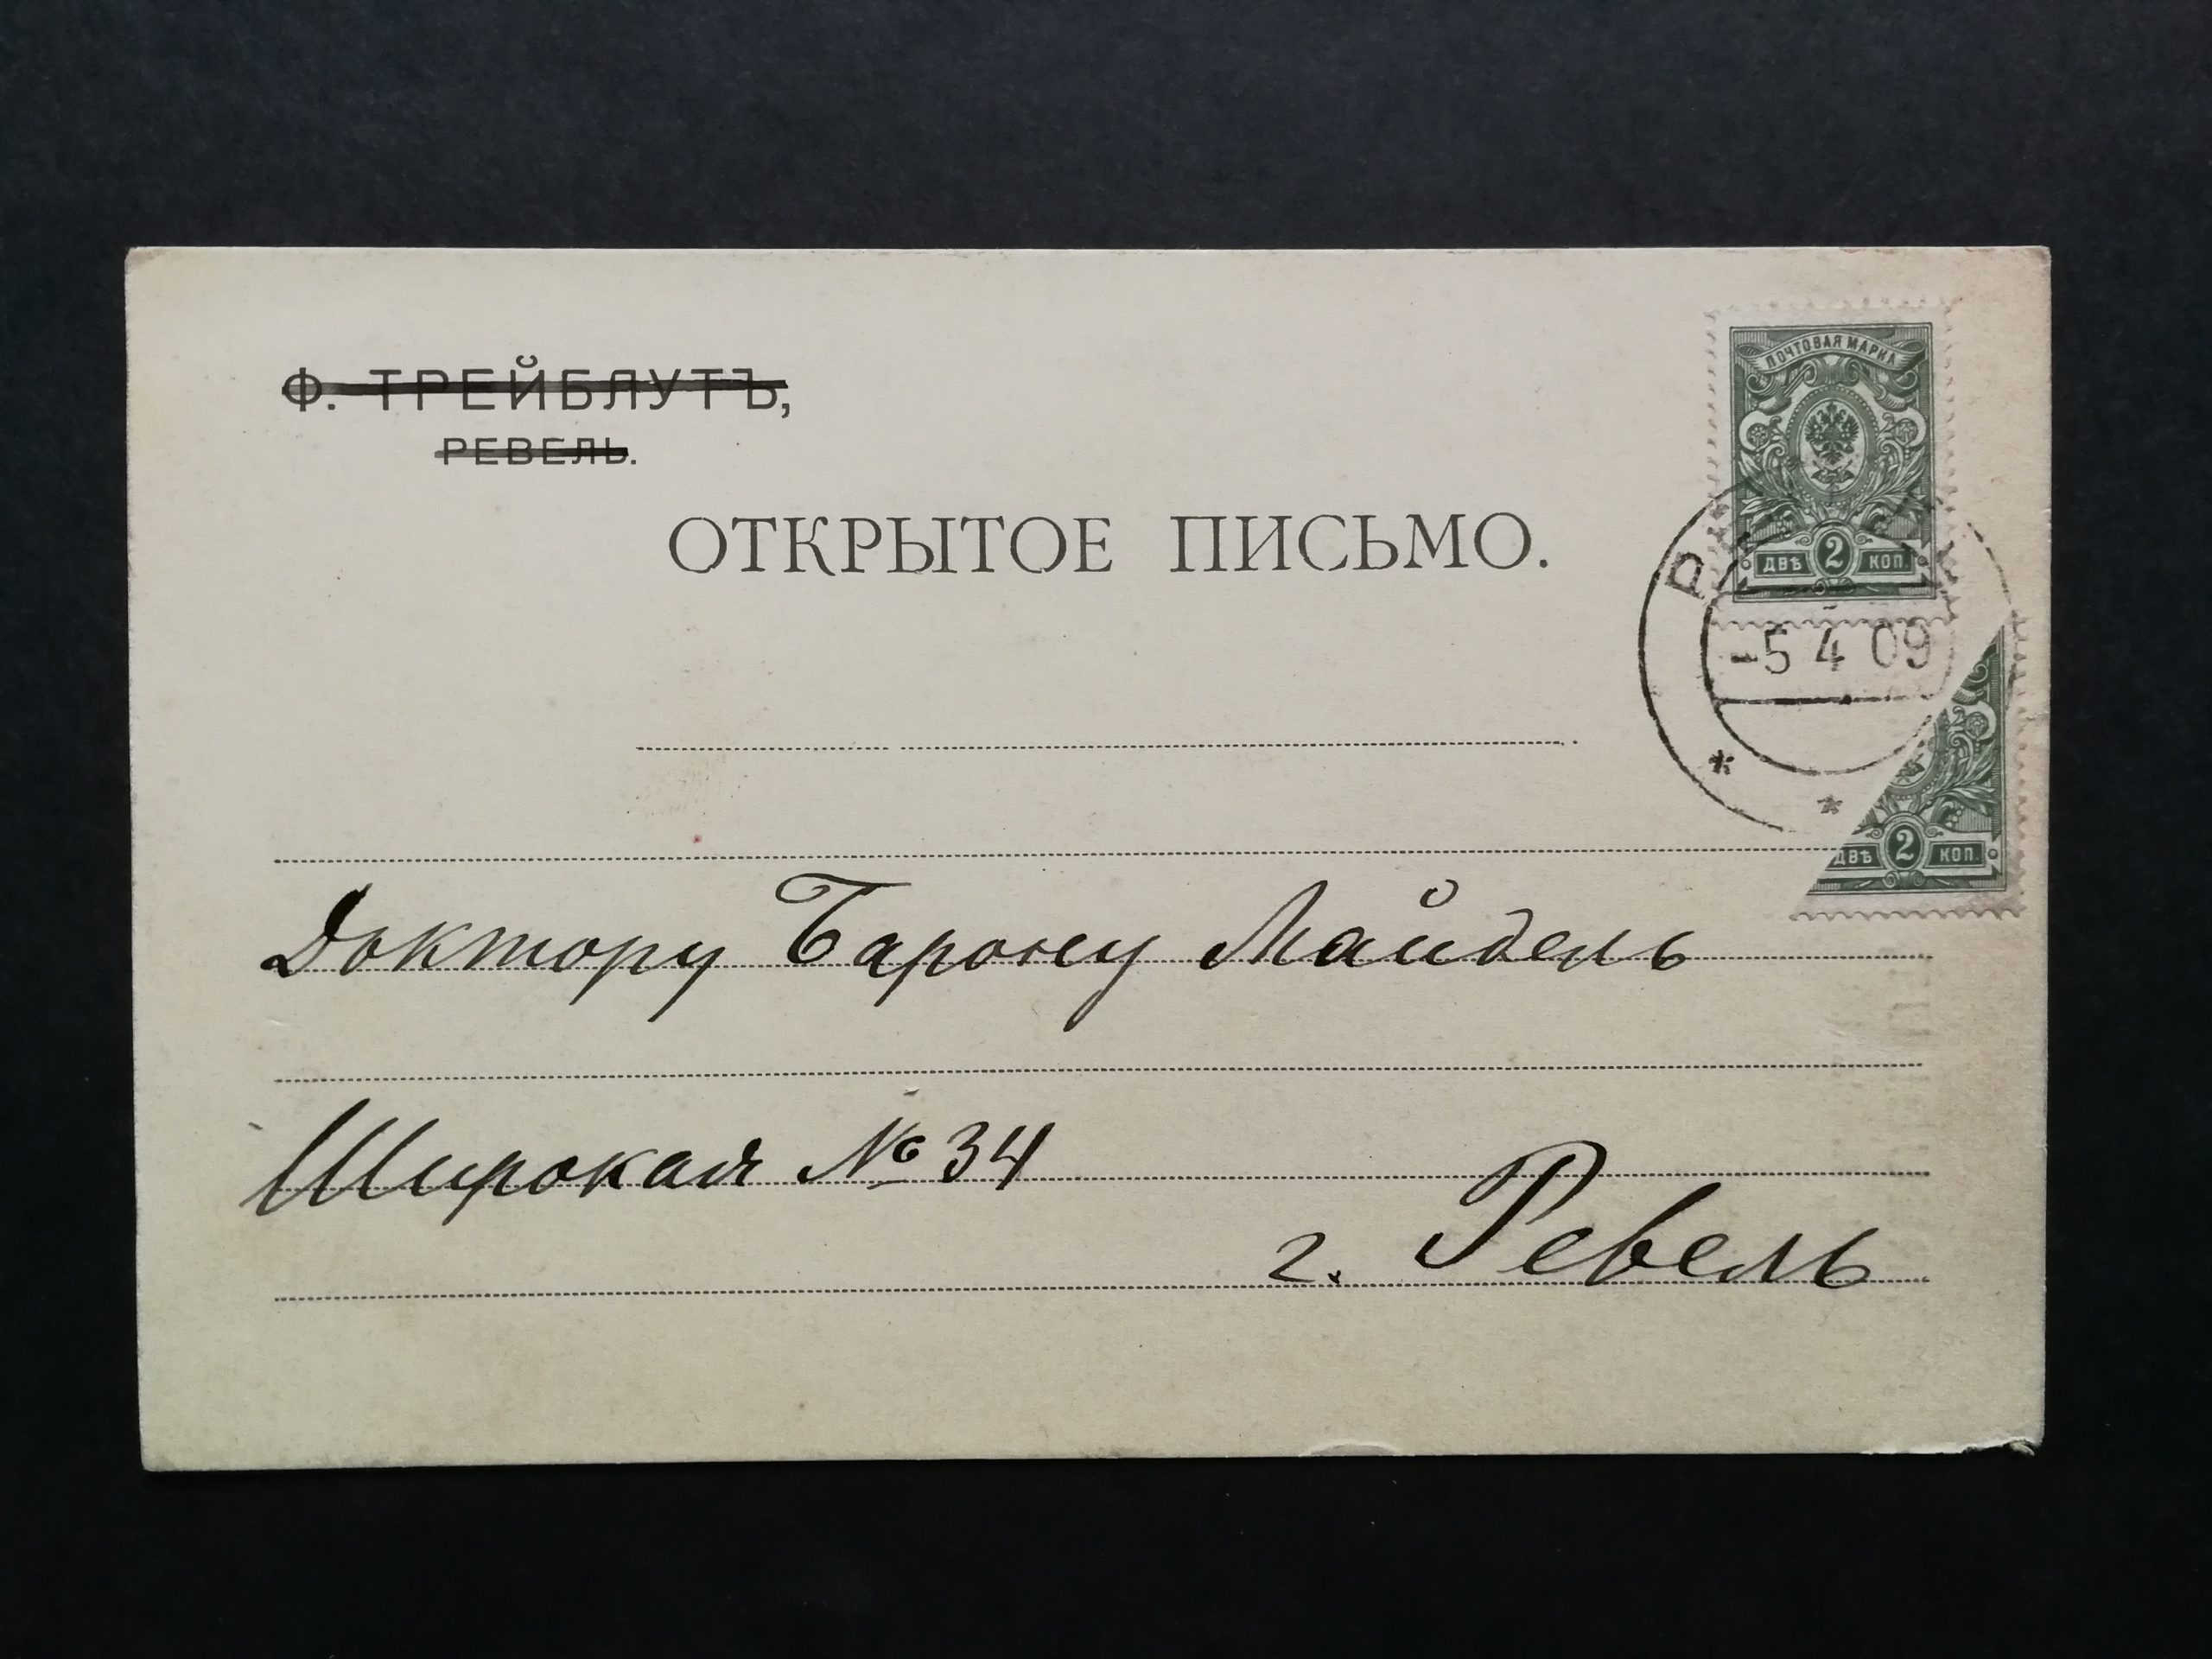 Ф. ТРЕЙБЛУТЪ,
РЕВЕЛЬ.
ОТКРЫТОЕ ПИСЬМО.
ПОЧТОВАЯ МАРКА
ДВѢ 2 КОП.
-5 4 09
ДВѢ 2 КОП.
Доктору Барону Майдель
Широкая № 34
г. Ревель